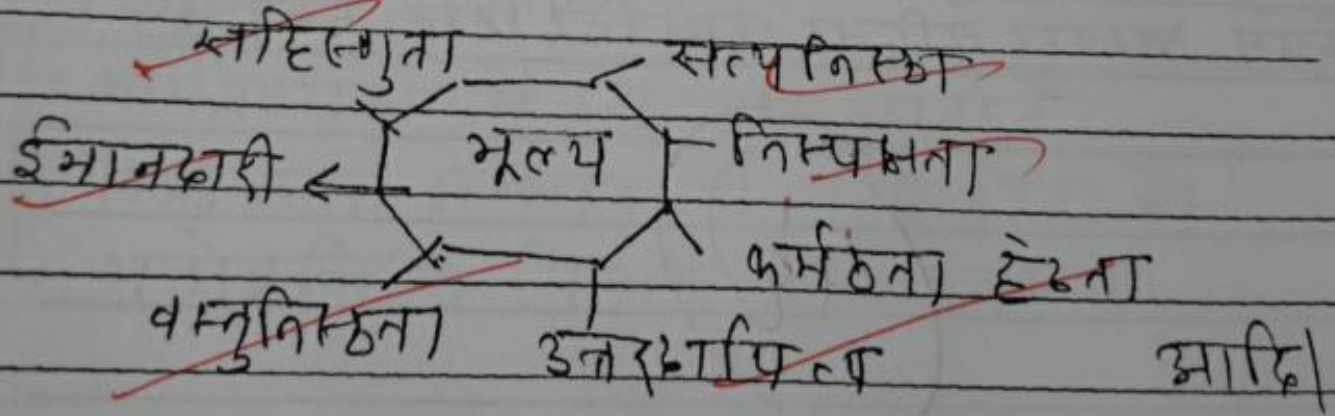 सहिष्णुता सत्यनिष्ठा
ईमानदारी मूल्य निष्पक्षता
कर्मठता
वस्तुनिष्ठता उत्तरदायित्व आदि।